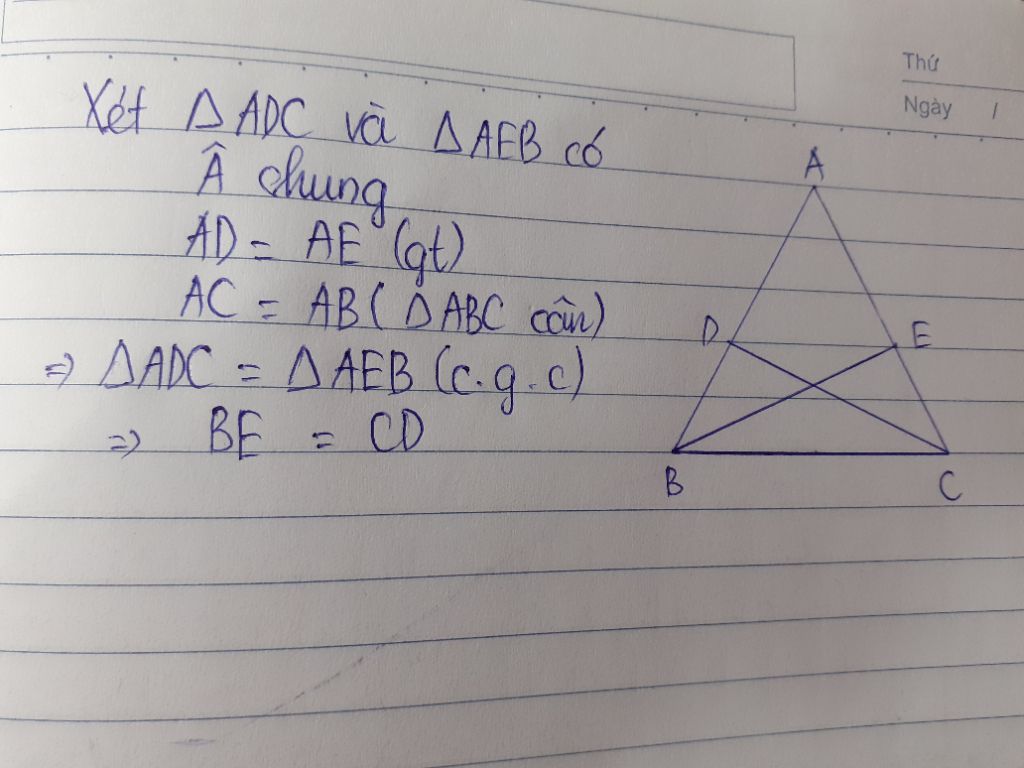 Thứ
Ngày /
Xét Δ ADC và Δ AEB có
Â chung
AD = AE (gt)
AC = AB ( Δ ABC cân)
=> Δ ADC = Δ AEB (c.g.c)
=> BE = CD
A
D E
B C